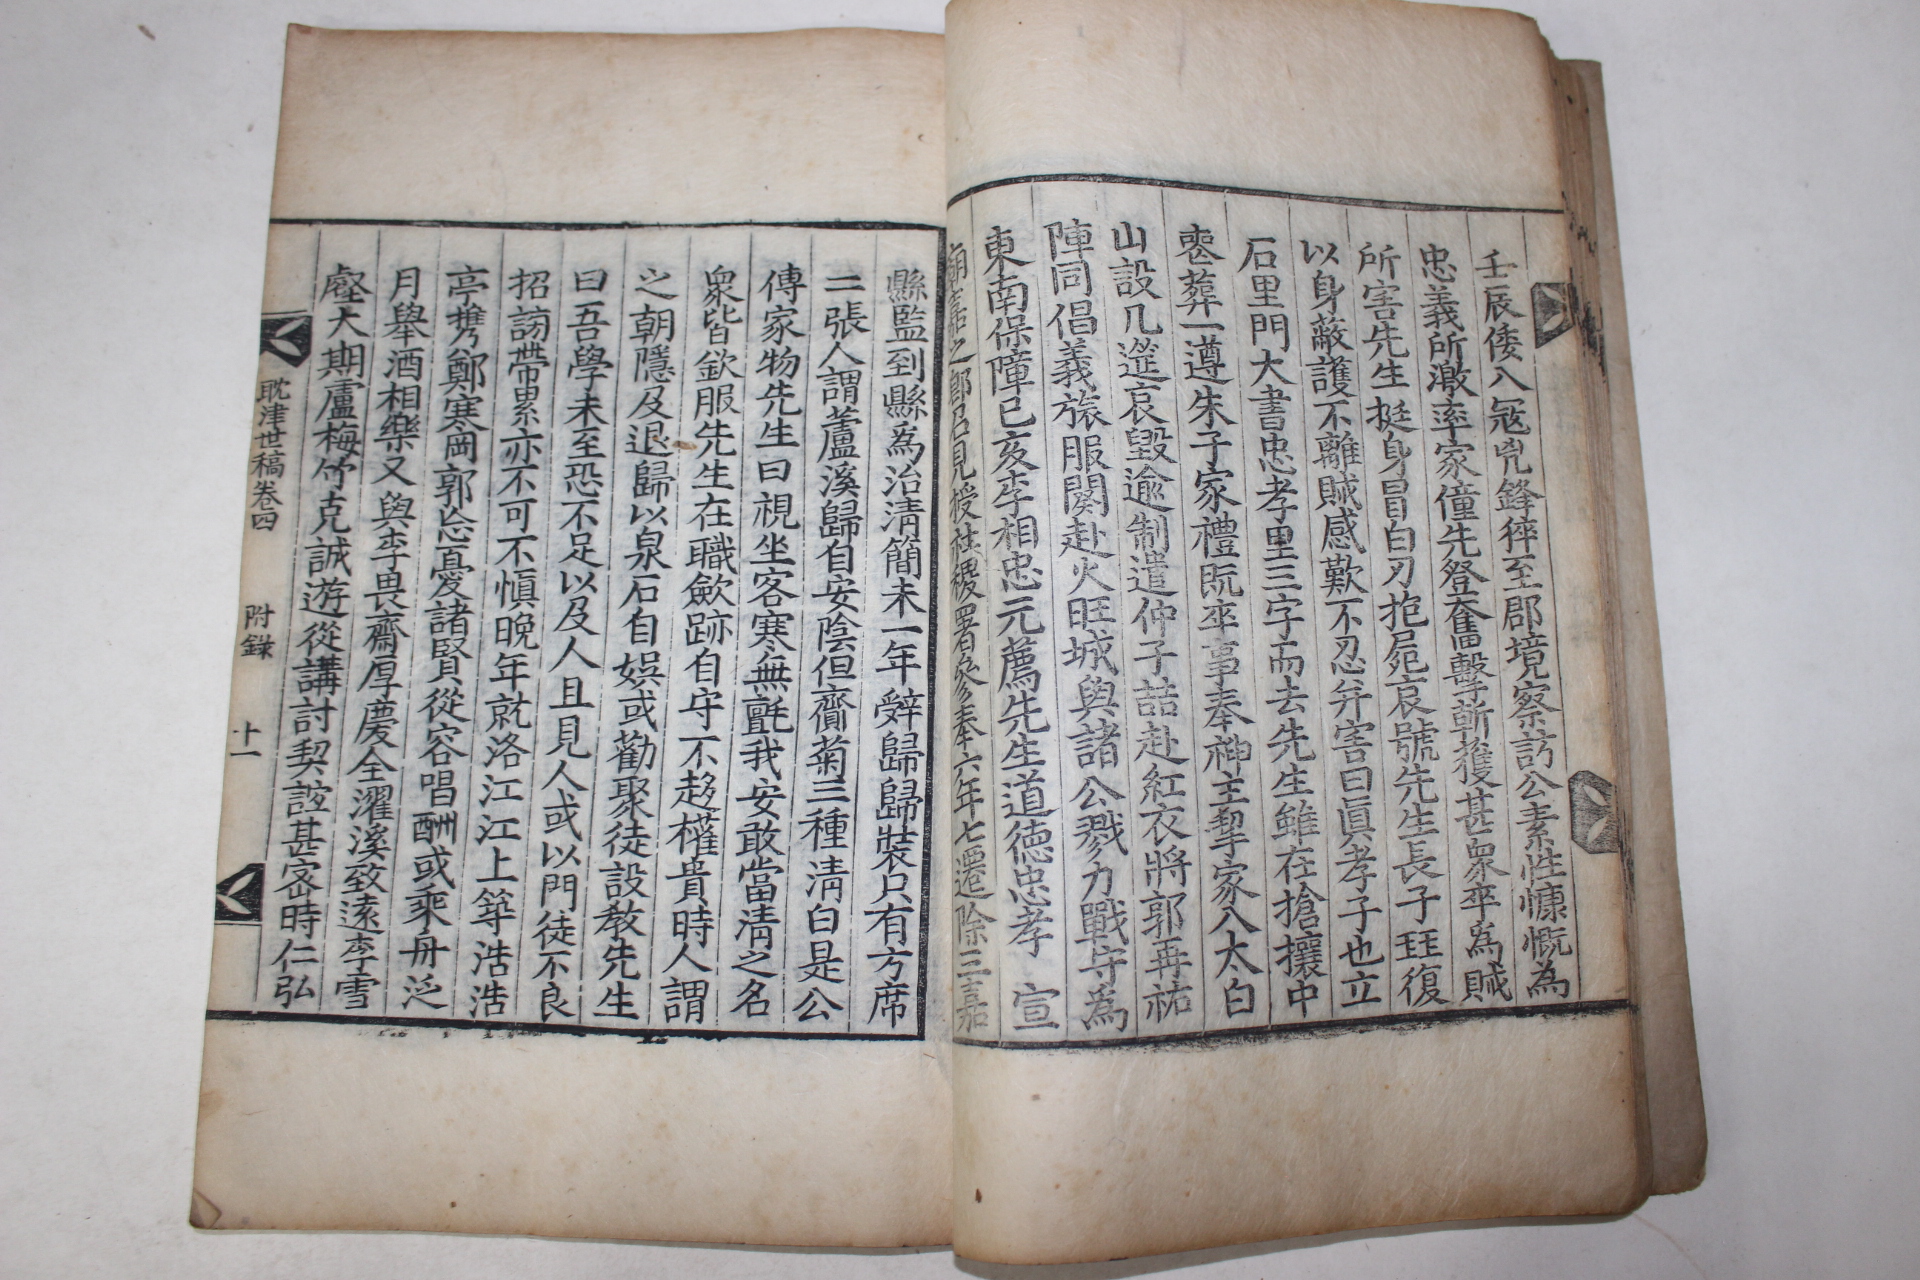 壬辰倭入寇兇鋒猝至郡境察訪公素性慷慨為
忠義所激率家僮先登奮擊斬獲甚衆卒為賊
所害先生挺身冒白刃抱屍哀號先生長子珏復
以身蔽護不離賊感歎不忍并害曰眞孝子也立
石里門大書忠孝里三字而去先生雖在搶攘中
喪葬一遵朱子家禮旣卒事奉神主挈家入太白
山設几筵哀毀逾制遣仲子喆赴紅衣將郭再祐
陣同倡義旅服闋赴火旺城與諸公戮力戰守為
東南保障己亥李相忠元薦先生道德忠孝 宣
廟嘉之卽召見授社稷署參奉六年七遷除三嘉
縣監到縣為治淸簡未一年辭歸歸裝只有方席
二張人謂蘆溪歸自安陰但齎菊三種淸白是公
傳家物先生曰視坐客寒無氈我安敢當淸之名
衆皆欽服先生在職歛跡自守不趍權貴時人謂
之朝隱及退歸以泉石自娛或勸聚徒設敎先生
曰吾學未至恐不足以及人且見人或以門徒不良
招謗帶累亦不可不愼晩年就洛江江上等浩浩
亭携鄭寒岡郭忘憂諸賢從容唱酬或乘舟泛
月擧酒相樂又與李畏齋厚慶全濯溪致遠李雪
壑大期盧梅竹克誠遊從講討契誼甚密時仁弘
耽津世稿卷四 附錄 十一